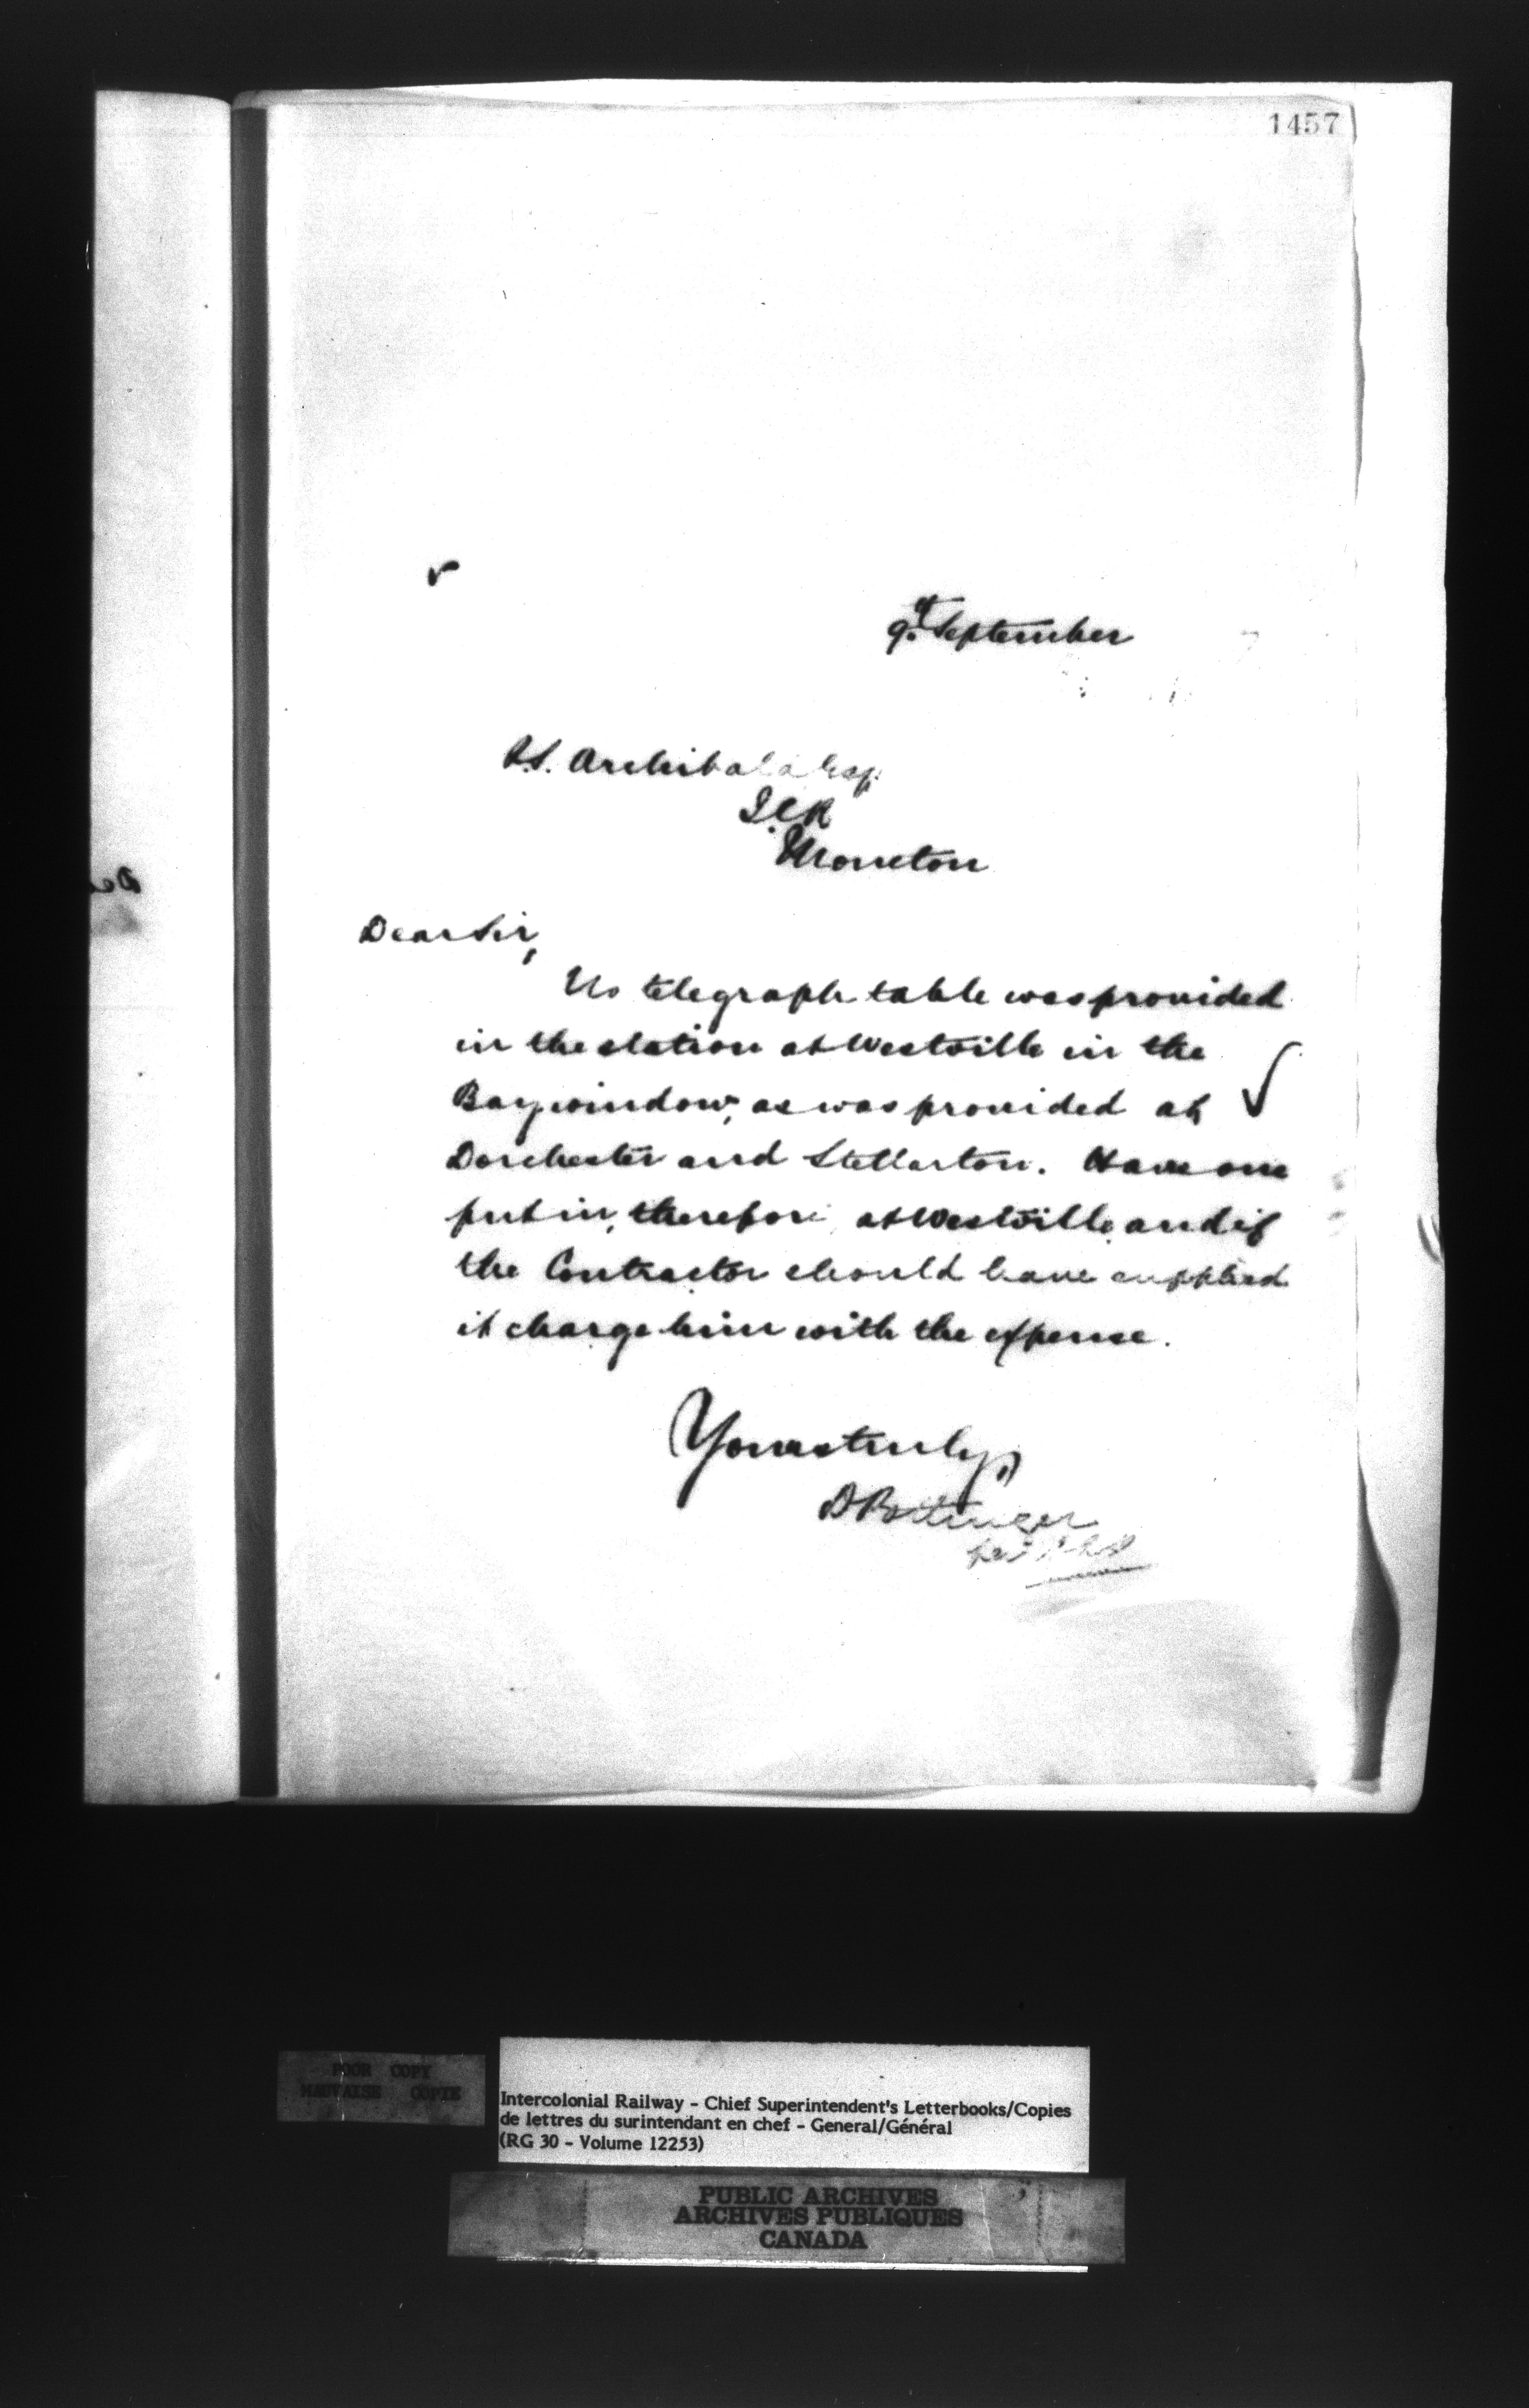 1457
9th September
P.S. Archibald Esq.
I.C.R
Moncton
Dear Sir,
No telegraph table was provided
in the station at Westville in the
Bay window, as was provided at
Dorchester and Stellarton. Have one
put in, therefore, at Westville and if
the Contractor should have supplied
it charge him with the expense.
Yours truly,
D Pottinger
POOR COPY
MAUVAISE COPIE
Intercolonial Railway - Chief Superintendent's Letterbooks/Copies
de lettres du surintendant en chef - General/Général
(RG 30 - Volume 12253)
PUBLIC ARCHIVES
ARCHIVES PUBLIQUES
CANADA